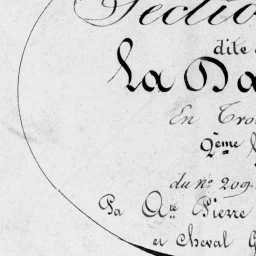 Sectio
dite
La Da
En Tro
2ème
du no 209
Pa Ate Pierre
et Cheval G